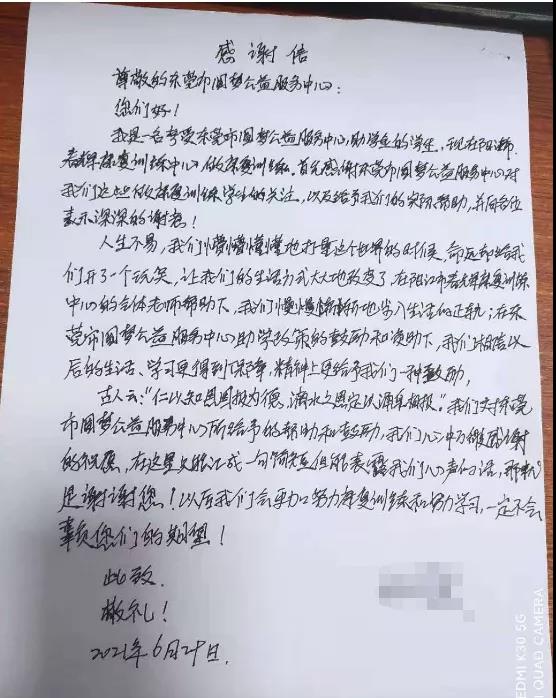 感谢信
尊敬的东莞市圆梦公益服务中心:
您们好!
我是一名享受东莞市圆梦公益服务中心助学金的学生,现在阳江市
春辉康复训练中心做康复训练。首先感谢东莞市圆梦公益服务中心对
我们这些做康复训练学生的关注,以及给予我们的实际帮助,并向各位
表示深深的谢意!
人生不易,我们懵懵懂懂地打量这个世界的时候,命运却给我
们开了一个玩笑,让我们的生活方式大大地改变了,在阳江市春辉康复训练
中心的全体老师帮助下,我们慢慢地步入生活的正轨;在东
莞市圆梦公益服务中心助学政策的鼓励和资助下,我们相信以
后的生活、学习更得到了保障,精神上更给予我们一种鼓励,
古人云:“仁以知恩图报为德,滴水之恩定以涌泉相报”。我们对东莞
市圆梦公益服务中心所给予的帮助和鼓励,我们心中万般感谢
的祝愿,在这里只能汇成一句简短但能表露我们心声的话,那就
是谢谢您!以后我们会更加努力康复训练和努力学习,一定不会
辜负您们的期望!
此致
敬礼!
2021年6月29日.
REDMI K30 5G
QUAD CAMERA